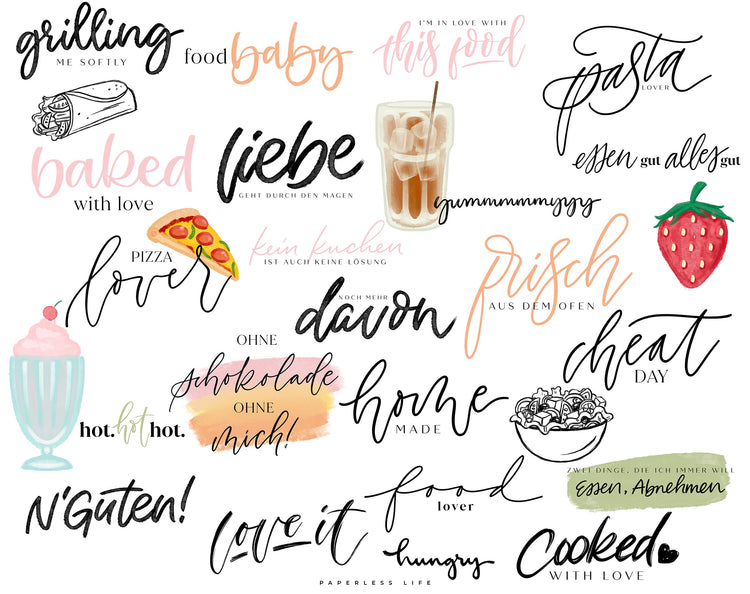 grilling
ME SOFTLY
food baby
I'M IN LOVE WITH
this food
pasta
LOVER
baked
with love
liebe
GEHT DURCH DEN MAGEN
essen gut alles gut
yummmmmyyyy
PIZZA
lover
kein kuchen
IST AUCH KEINE LÖSUNG
frisch
AUS DEM OFEN
NOCH MEHR
davon
cheat
DAY
OHNE
schokolade
OHNE
mich!
hot. hot hot.
home
MADE
ZWEI DINGE, DIE ICH IMMER WILL
Essen, Abnehmen
N'Guten!
love it
food
lover
hungry
Cooked
WITH LOVE
PAPERLESS LIFE